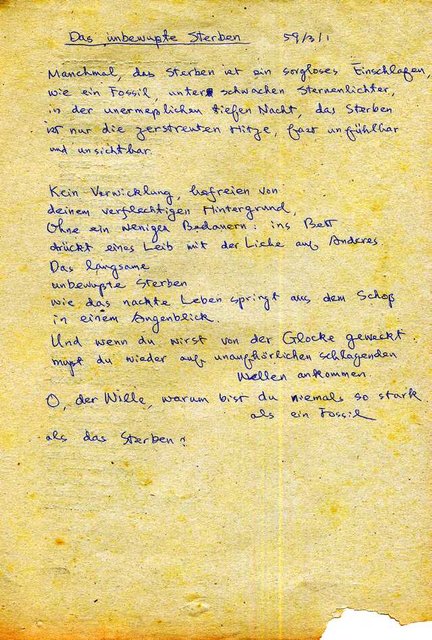 Das unbewupte Sterben 59/3/1
Manchmal, das Sterben ist ein sorgloses Einschlafen,
wie ein Fossil unter schwachen Sternenlichter,
in der unermeplichen tiefen Nacht, das Sterben
ist nur die zerstreuten Hitze, fast unfühlbar
und unsichtbar.
Kein Verwicklung, befreien von
deinem verflechtigen Hintergrund,
Ohne ein weniger Bedauern: ins Bett
drückt eines Leib mit der Liebe auf Anderes
Das langsame
unbewupte Sterben
wie das nackte Leben springt aus dem Schoß
in einem Angenblick.
Und wenn du wirst von der Glocke geweckt
mupt du wieder auf unaufhörlichen schlagenden
Wellen ankommen.
O, der Wille, warum bist du niemals so stark
als ein Fossil
als das Sterben?